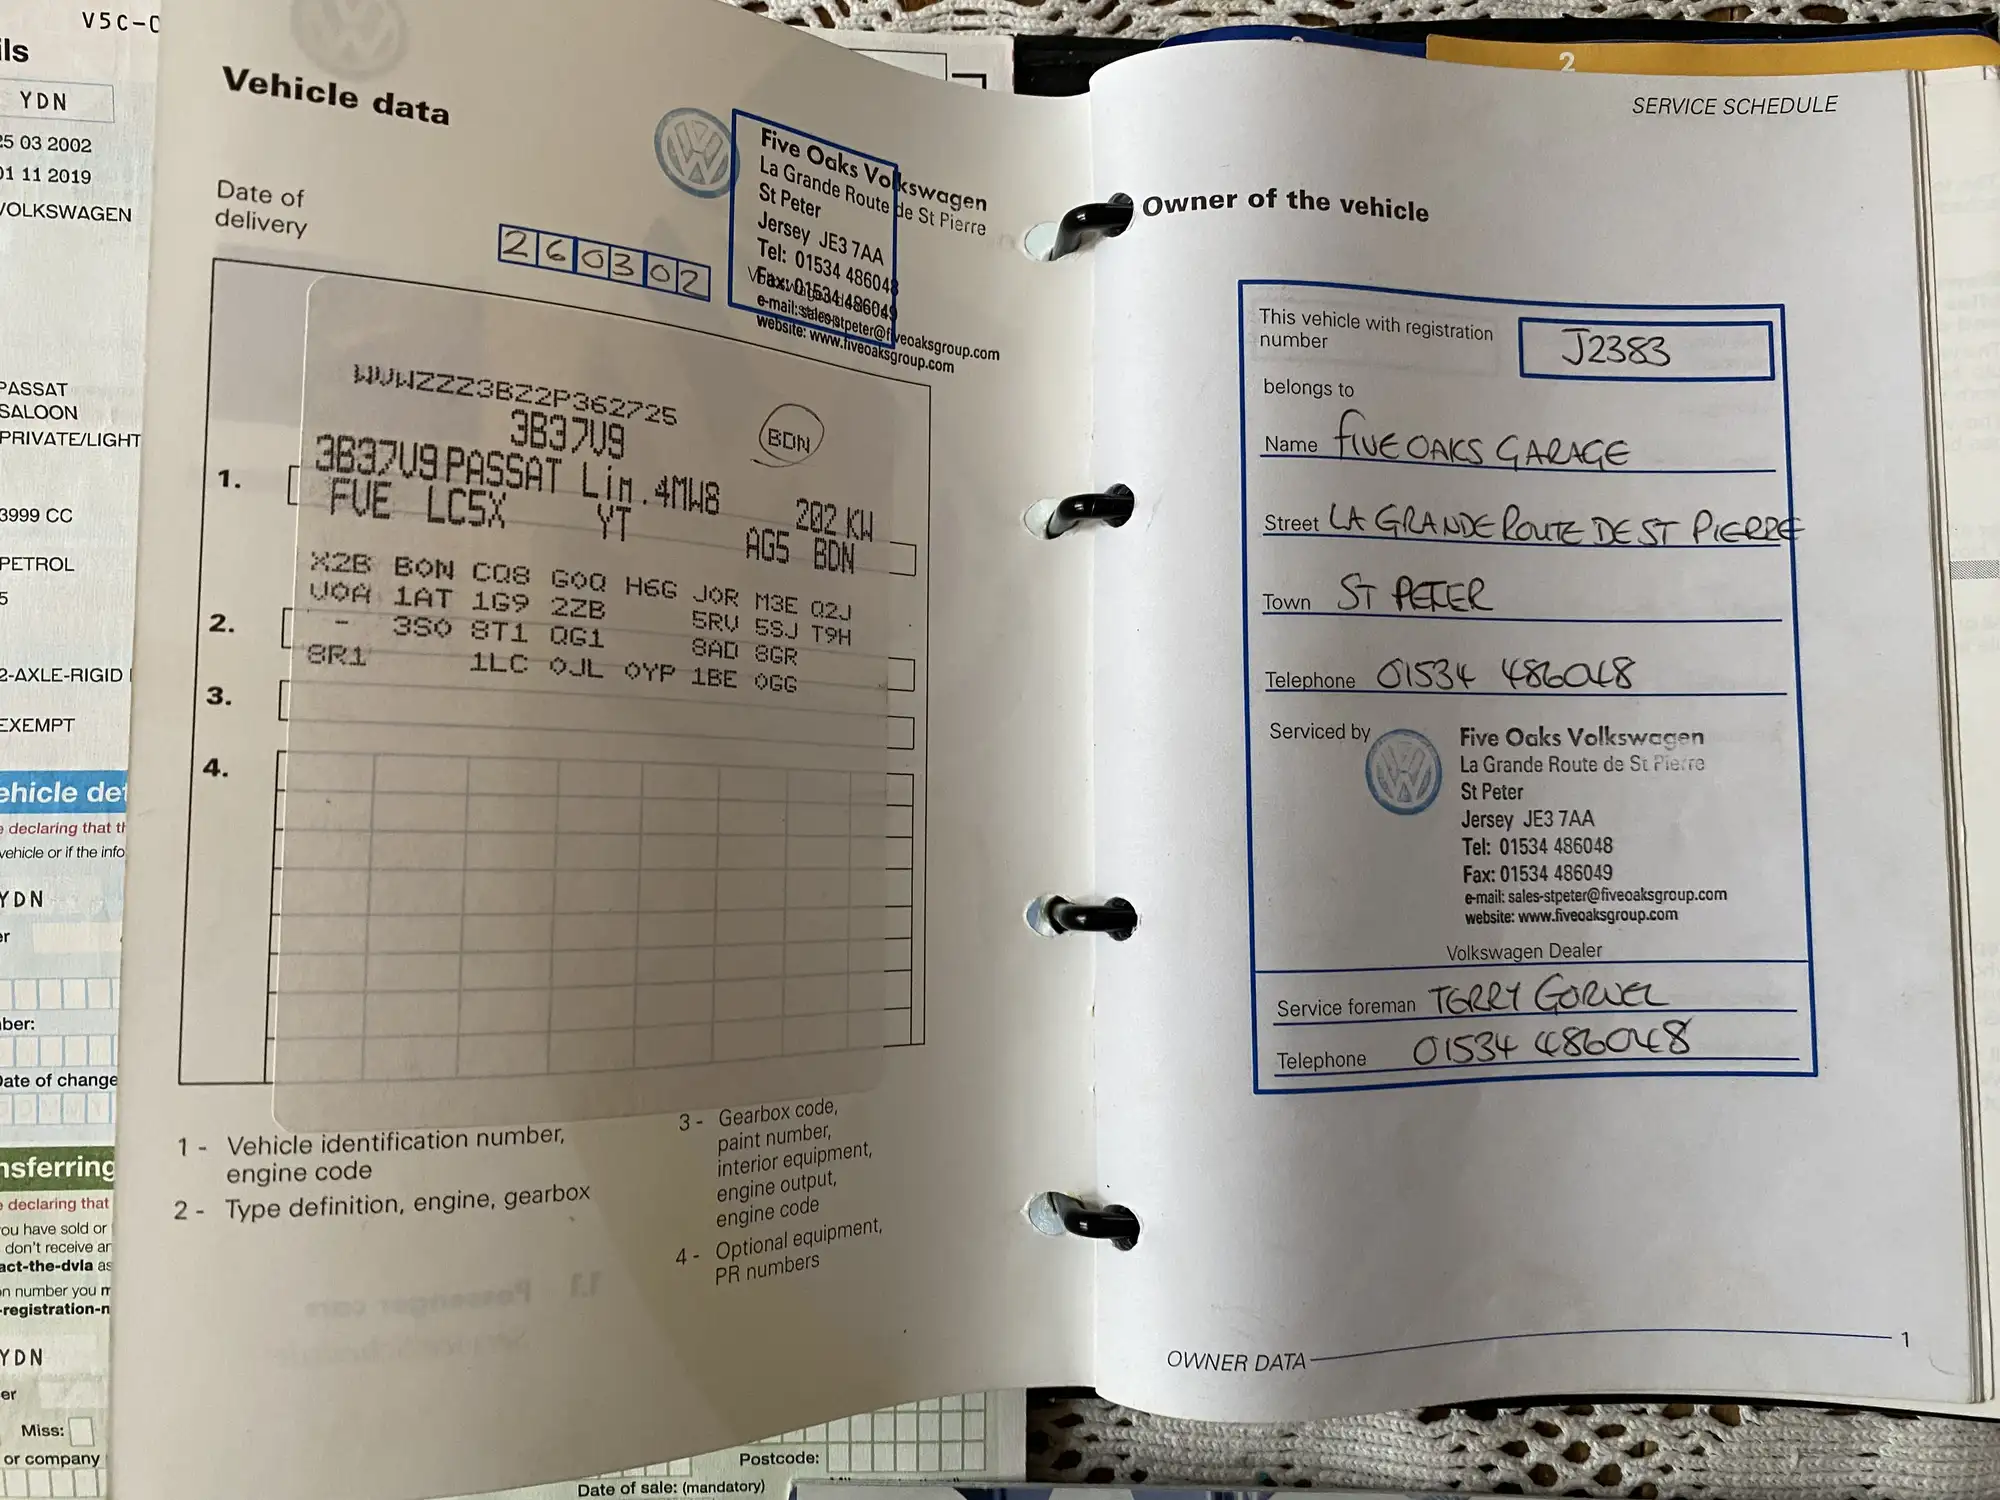 V5C-
ils
YDN
5 03 2002
01 11 2019
VOLKSWAGEN
PASSAT
SALOON
PRIVATE/LIGHT
3999 CC
PETROL
5
2-AXLE-RIGID
EXEMPT
ehicle det
declaring that th
vehicle or if the info
YDN
er
ber:
Date of change
nsferring
declaring that
ou have sold or
don't receive an
act-the-dvla as
n number you m
-registration-n
YDN
er
Miss:
or company
Postcode:
Date of sale: (mandatory)
Vehicle data
Date of
delivery
260302
Five Oaks Volkswagen
La Grande Route de St Pierre
St Peter
Jersey JE3 7AA
Tel: 01534 486048
Fax: 01534 486049
e-mail: sales-stpeter@fiveoaksgroup.com
website: www.fiveoaksgroup.com
WVWZZZ3BZ2P362725
3B37U9
BDN
1.
3B37U9 PASSAT Lim. 4MW8 202 KW
FVE LC5X YT AG5 BDN
X2B B0N CQ8 G0Q H6G J0R M3E Q2J
U0A 1AT 1G9 2ZB 5RV 5SJ T9H
2.
- 3S0 8T1 QG1 8AD 8GR
8R1 1LC 0JL 0YP 1BE 0GG
3.
4.
1 - Vehicle identification number,
engine code
2 - Type definition, engine, gearbox
3 - Gearbox code,
paint number,
interior equipment,
engine output,
engine code
4 - Optional equipment,
PR numbers
2
SERVICE SCHEDULE
Owner of the vehicle
This vehicle with registration
number
J2383
belongs to
Name FIVE OAKS GARAGE
Street LA GRANDE ROUTE DE ST PIERRE
Town ST PETER
Telephone 01534 486048
Serviced by
Five Oaks Volkswagen
La Grande Route de St Pierre
St Peter
Jersey JE3 7AA
Tel: 01534 486048
Fax: 01534 486049
e-mail: sales-stpeter@fiveoaksgroup.com
website: www.fiveoaksgroup.com
Volkswagen Dealer
Service foreman TERRY GORVEL
Telephone 01534 486048
OWNER DATA 1